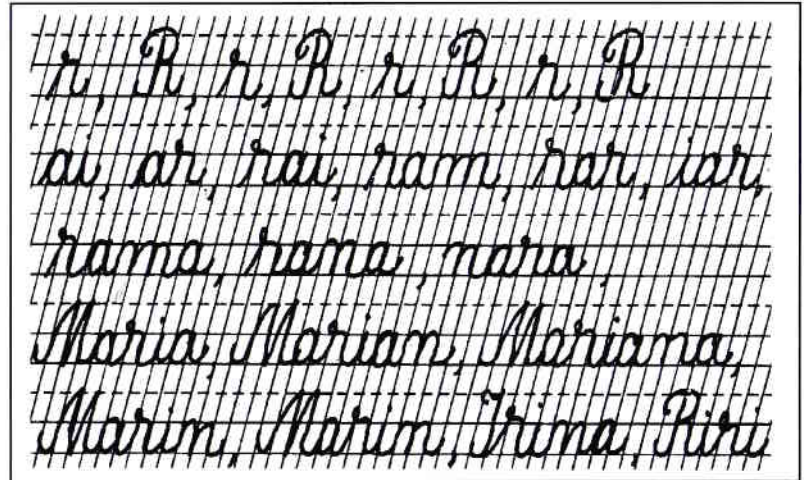 r, R, r, R, r, R, r, R
ai, ar, rai, ram, rar, iar,
rama, rana, nara,
Maria, Marian, Mariana,
Marin, Marin, Irina, Riri